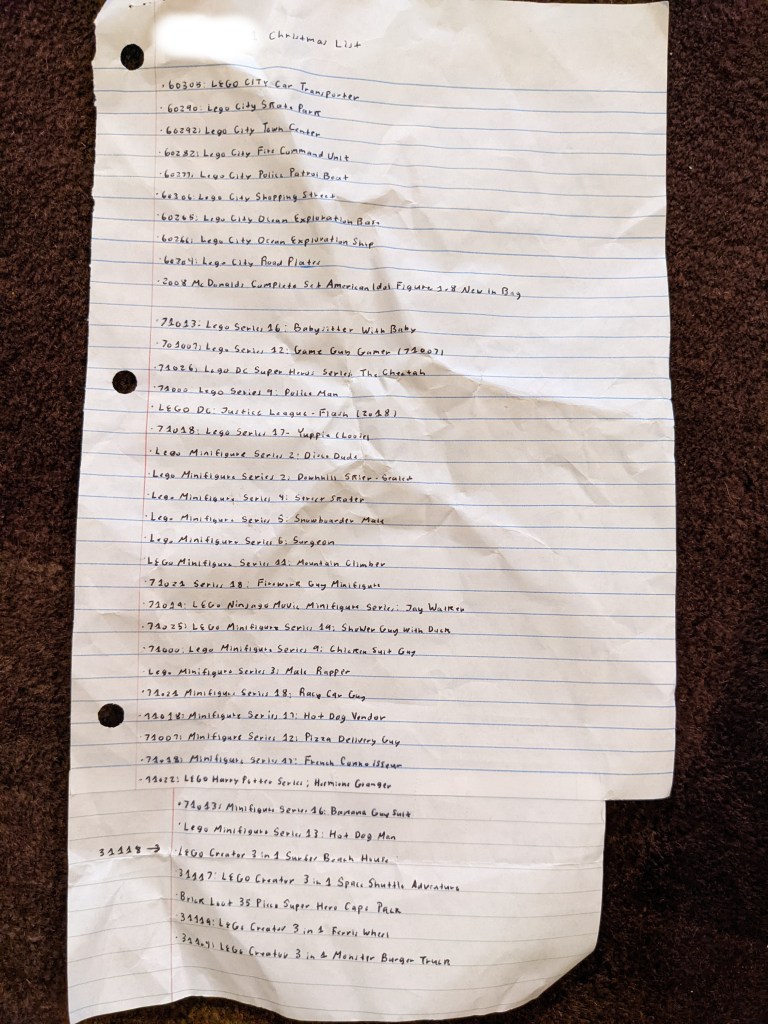 Christmas List
• 60305: LEGO CITY Car Transporter
• 60290: Lego City Skate Park
• 60292: Lego City Town Center
• 60282: Lego City Fire Command Unit
• 60277: Lego City Police Patrol Boat
• 60306: Lego City Shopping Street
• 60265: Lego City Ocean Exploration Base
• 60266: Lego City Ocean Exploration Ship
• 60304: Lego City Road Plates
• 2008 McDonalds Complete Set American Idol Figure 1-8 New in Bag
• 71013: Lego Series 16: Babysitter With Baby
• 701007: Lego Series 12: Game Guy Gamer (71007)
• 71026: Lego DC Super Heros Series: The Cheetah
• 71000 Lego Series 9: Police Man
• LEGO DC: Justice League - Flash (2018)
• 71018: Lego Series 17- Yuppie
• Lego Minifigure Series 2: Disco Dude
• Lego Minifigure Series 2: Downhill Skier - Sealed
• Lego Minifigure Series 4: Street Skater
• Lego Minifigure Series 5: Snowboarder Male
• Lego Minifigure Series 6: Surgeon
• LEGO Minifigure Series 11: Mountain Climber
• 71021 Series 18: Firework Guy Minifigure
• 71019: LEGO Ninjago Movie Minifigure Series: Jay Walker
• 71025: LEGO Minifigure Series 19: Shower Guy With Duck
• 71000: Lego Minifigure Series 9: Chicken Suit Guy
• Lego Minifigure Series 3: Male Rapper
• 71021 Minifigure Series 18: Race Car Guy
• 71018: Minifigure Series 17: Hot Dog Vendor
• 71007: Minifigure Series 12: Pizza Delivery Guy
• 71018: Minifigure Series 17: French Connoisseur
• 71022: LEGO Harry Potter Series; Hermione Granger
• 71013: Minifigure Series 16: Banana Guy Suit
• Lego Minifigure Series 13: Hot Dog Man
31118 → • LEGO Creator 3 in 1 Surfer Beach House
31117: LEGO Creator 3 in 1 Space Shuttle Adventure
• Brick Loot 35 Piece Super Hero Cape Pack
• 31119: LEGO Creator 3 in 1 Ferris Wheel
• 31104: LEGO Creator 3 in 1 Monster Burger Truck